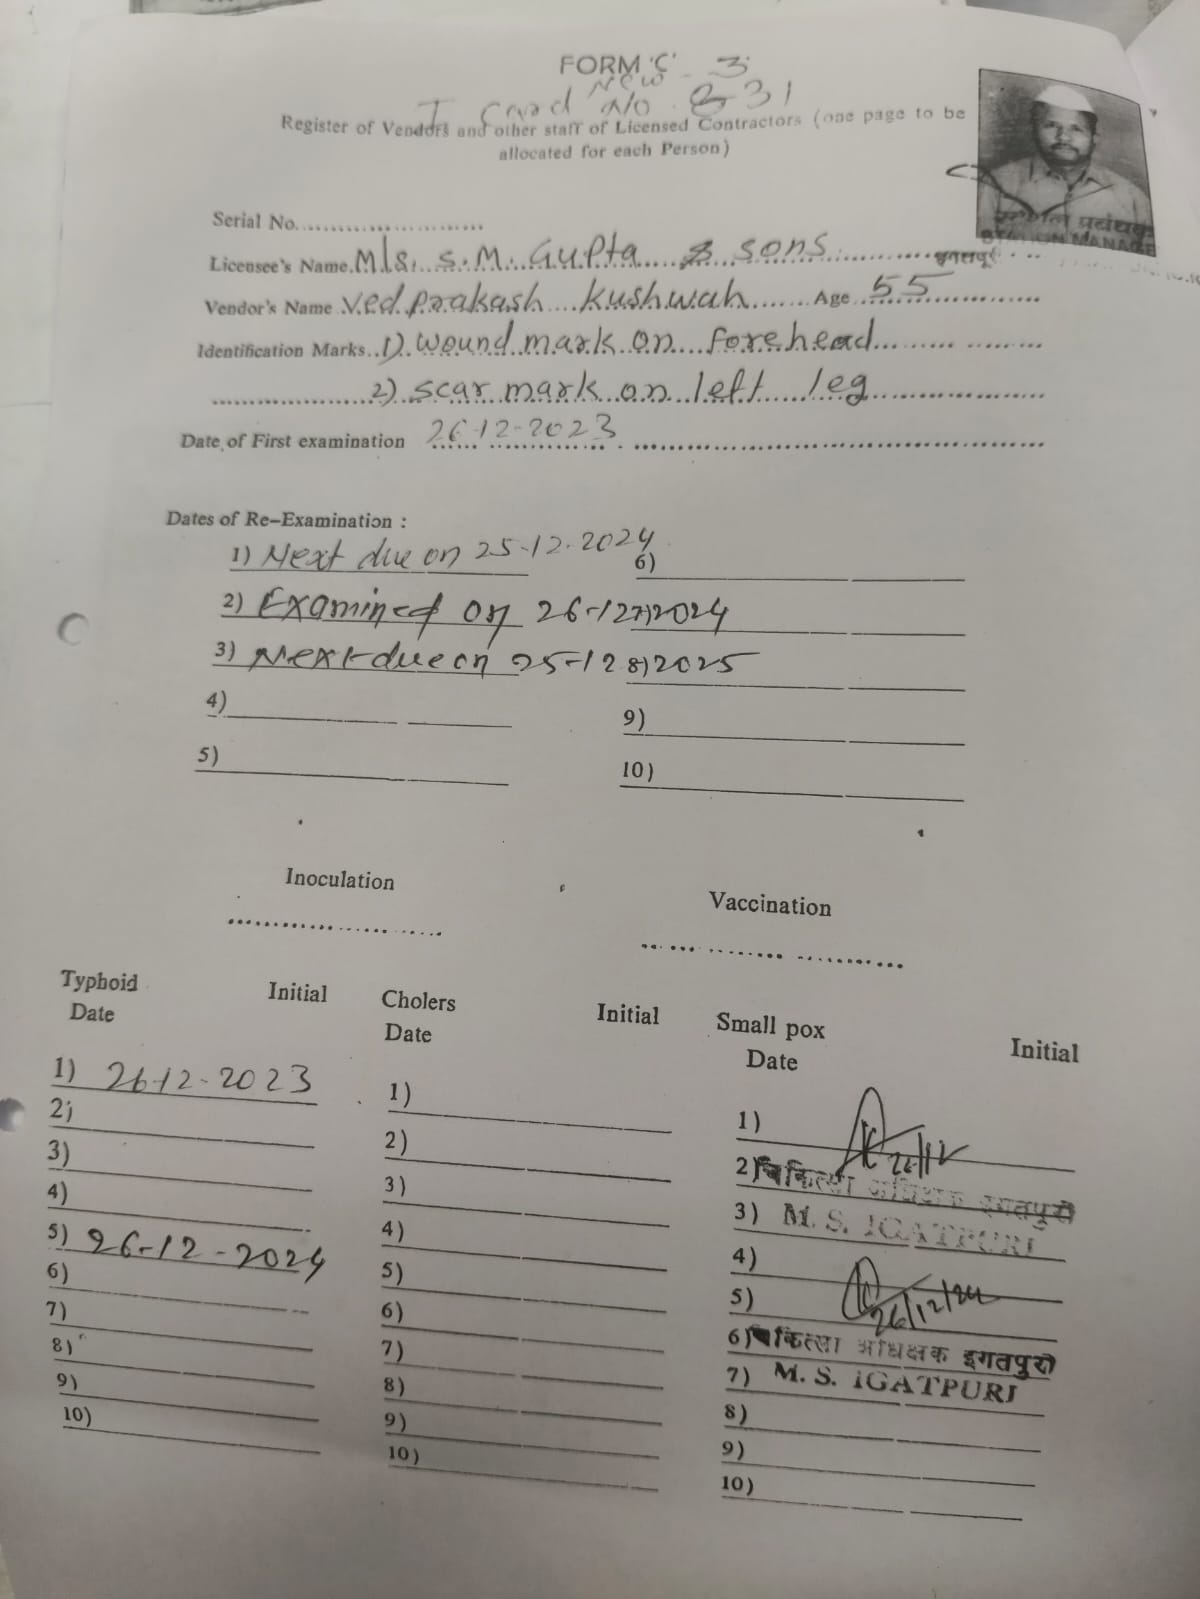 FORM 'C'
New - 3
I card No. 831
Register of Vendors and other staff of Licensed Contractors (one page to be
allocated for each Person)
प्रबंधक
STATION MANAGE
इगतपुरी
Serial No.
Licensee's Name M/s. S.M. Gupta & sons
Vendor's Name Ved prakash kushwah Age 55
Identification Marks 1) wound mark on forehead
2) scar mark on left leg
Date of First examination 26-12-2023
Dates of Re-Examination :
1) Next due on 25-12-2024 6)
2) Examined on 26-12-2024 7)
3) Next due on 25-12-2025 8)
4) 9)
5) 10)
Inoculation Vaccination
Typhoid Initial Cholers Initial Small pox Initial
Date Date Date
1) 26-12-2023 1) 1) 26/12
2) 2) 2) चिकित्सा अधिक्षक इगतपुरी
3) 3) 3) M. S. IGATPURI
4) 4) 4)
5) 26-12-2024 5) 5) 26/12/24
6) 6) 6) चिकित्सा अधिक्षक इगतपुरी
7) 7) 7) M. S. IGATPURI
8) 8) 8)
9) 9) 9)
10) 10) 10)